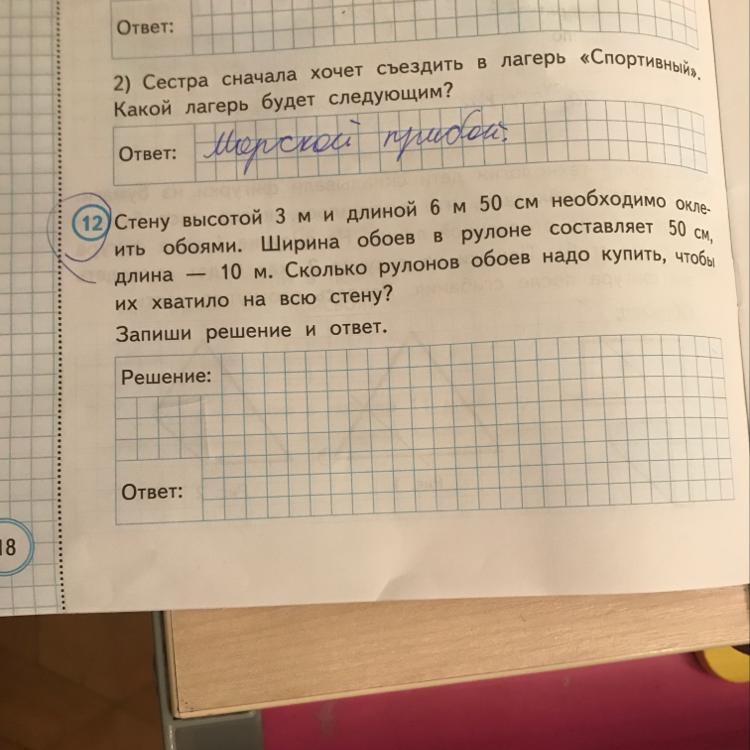 Ответ:
2) Сестра сначала хочет съездить в лагерь «Спортивный».
Какой лагерь будет следующим?
Ответ: Морской прибой.
12 Стену высотой 3 м и длиной 6 м 50 см необходимо окле-
ить обоями. Ширина обоев в рулоне составляет 50 см,
длина — 10 м. Сколько рулонов обоев надо купить, чтобы
их хватило на всю стену?
Запиши решение и ответ.
Решение:
Ответ:
18